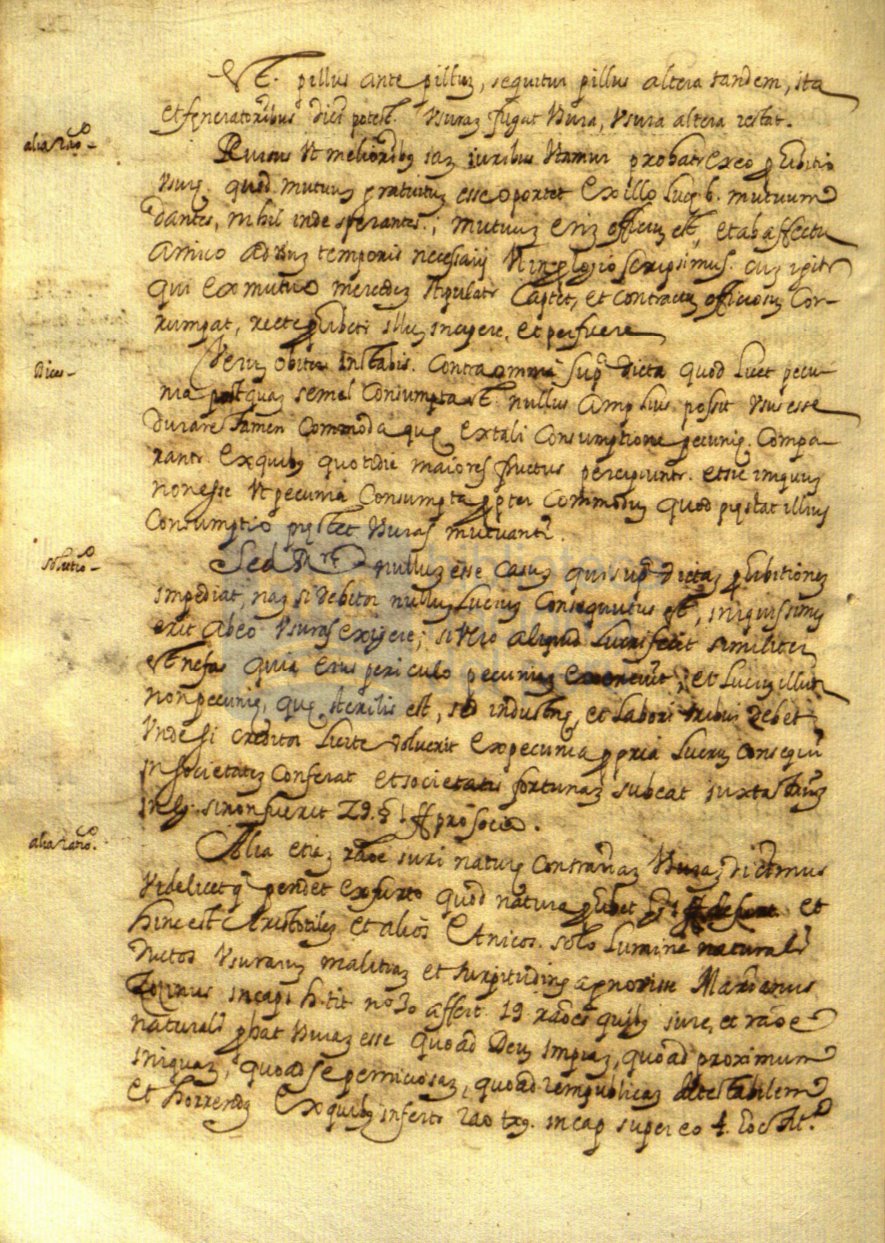 Vt. pillus ante pilluz, sequitur pillus altera tandem, ita
et feneratoribus dici potest. Usuraz fugat Usura, Usura altera restat.
alia rao –
Rursus Ut melioribus iuribus Utamur probatr ex eo
Usurę. quod mutuuz gratuituz esse oportet Ex illo Lucę 6. mutuum
dantes, nihil inde sperantes.; mutuuz eniz officiuz est, et ab affectu
amico ad temporis necessarij scripsimus. cuz igitr
qui Ex mutuo mercedez stipulatr Captet, et contractuz officiosuz Cor-
rumpat, recte illuz incipere, et
Dices –
Veruz obitur Instabis. Contra omnia supra dicta quod Licet pecu-
nia postquaz semel Consumpta est. nullus amplius possit Usus esse
durare tamen Commoda quę ex tali Consumptione pecunię. Compa-
rantr Ex quibus quotidie maiores fructus percipiuntr. et sic iniquuz
non esse Ut pecunia Consumpta propter Commoduz quod pręstat illius
Consumptio pręstet Usuras mutuanti.
solutio –
Sed Rr. nulluz esse Casuz qui supra dictaz prohibitionez
impediat, naz si debitor nulluz Lucruz Consequutus est, iniquissimuz
erit ab eo Usuras Exigere; si Vero aliquid Lucri fecit similiter
est nefas quia eius periculo pecuniaz, et Lucruz illud
non pecunię, quę sterilis est, sed industrię, et Laboribus debet
Unde si creditor Licite Voluerit Ex pecunia propria Lucruz Consequi
in societatez Conferat et societatis fortunaz subeat iuxta
in l. si non fuerit 29. § 1 ff pro socio.
alia ratio.
Alia etiaz raoe iuri naturę Contrariaz Usuraz dicimus
Videlicet q pendet Ex furto quod natura prohibet et
hinc est Aristotilez et alios Etnicos. solo Lumine naturali
ductos Usuraruz malitiaz et turpitudinez agnovisse
in cap. h. tit no 30 affert. 19 raoes quibus iure, et raoe
naturali probat Usuraz esse quo ad Deuz impiaz, quo ad proximum
iniquaz, quo ad se perniciosaz, quo ad rempublicaz detestabilem
et horrendaz Ex quibus infertr rao in cap super eo 4.